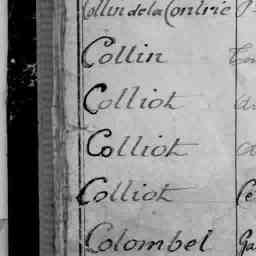 Collin de la Contrie
Collin
Colliot
Colliot
Colliot
Colombel